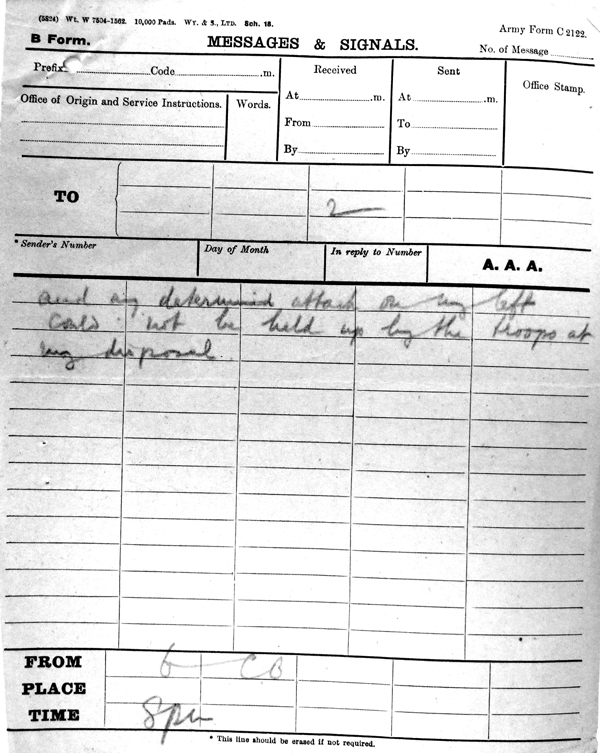 (5824) Wt. W 7504-1562. 10,000 Pads. Wy. & S., Ltd. Sch. 15.
Army Form C 2122.
B Form. MESSAGES & SIGNALS. No. of Message
Prefix Code .m. Received Sent Office Stamp.
Office of Origin and Service Instructions. Words. At .m. At .m.
From To
By By
TO
2
* Sender's Number Day of Month In reply to Number A. A. A.
and any determined attack on my left
could not be held up by the troops at
my disposal
FROM 6 CO
PLACE
TIME 8 pm
* This line should be erased if not required.